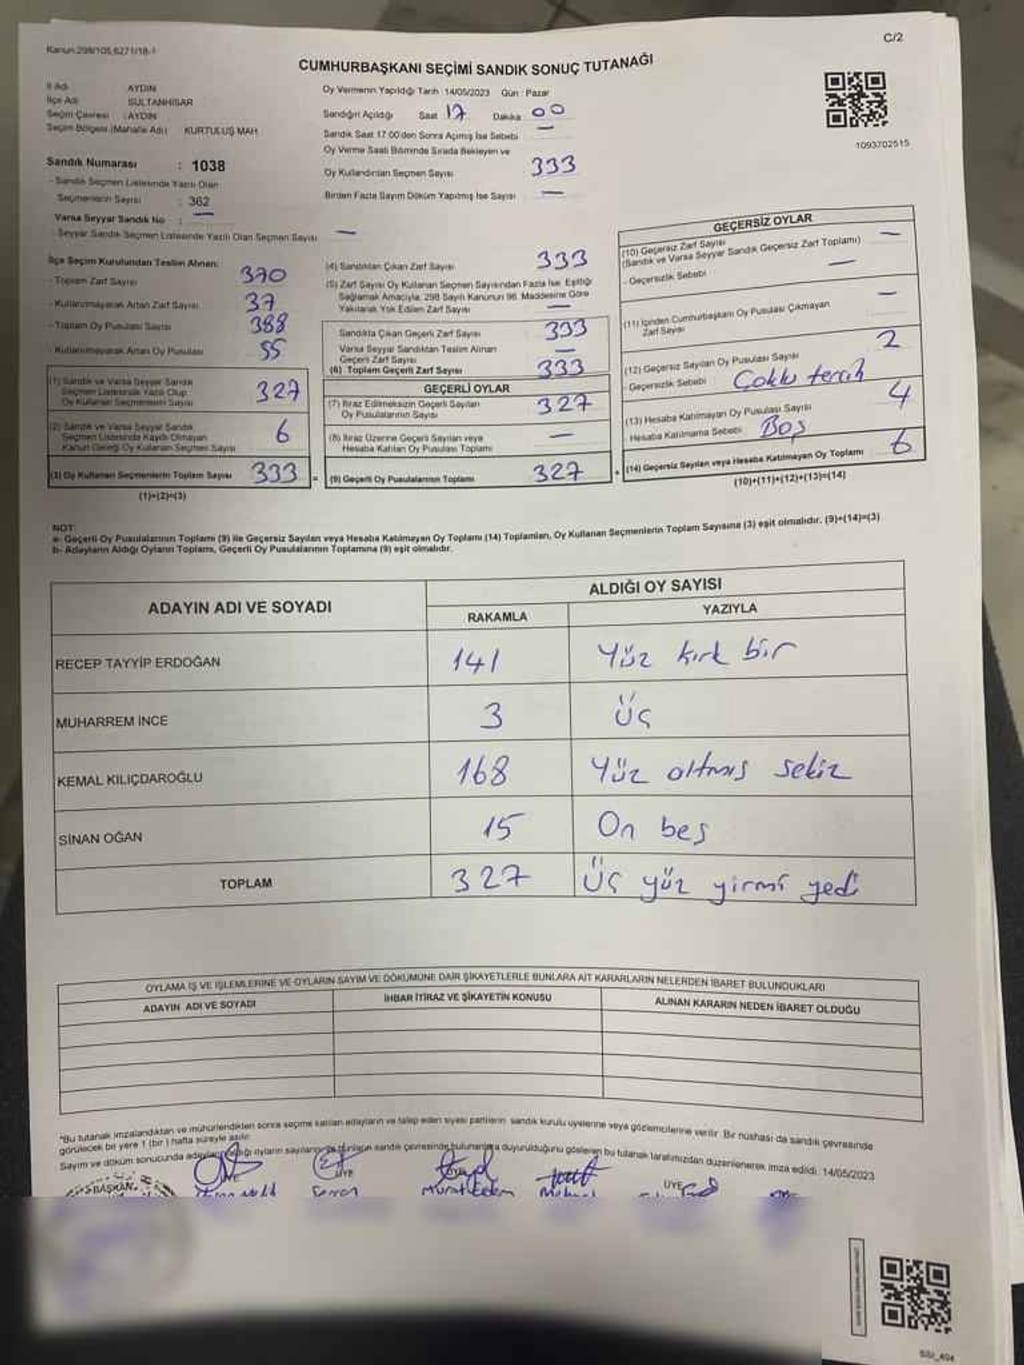 Kanun:298/105,6271/18-1
C/2
CUMHURBAŞKANI SEÇİMİ SANDIK SONUÇ TUTANAĞI
İl Adı AYDIN
İlçe Adı SULTANHİSAR
Seçim Çevresi : AYDIN
Seçim Bölgesi (Mahalle Adı) KURTULUŞ MAH.
Oy Vermenin Yapıldığı Tarih : 14/05/2023 Gün : Pazar
Sandığın Açıldığı Saat 17 Dakika 00
Sandık Saat 17:00'den Sonra Açılmış İse Sebebi —
Oy Verme Saati Bitiminde Sırada Bekleyen ve
Oy Kullandırılan Seçmen Sayısı 333
Birden Fazla Sayım Döküm Yapılmış İse Sayısı —
1093702515
Sandık Numarası : 1038
- Sandık Seçmen Listesinde Yazılı Olan
Seçmenlerin Sayısı : 362
Varsa Seyyar Sandık No : —
- Seyyar Sandık Seçmen Listesinde Yazılı Olan Seçmen Sayısı —
İlçe Seçim Kurulundan Teslim Alınan:
- Toplam Zarf Sayısı 370
- Kullanılmayarak Artan Zarf Sayısı 37
- Toplam Oy Pusulası Sayısı 388
- Kullanılmayarak Artan Oy Pusulası 55
(1) Sandık ve Varsa Seyyar Sandık
Seçmen Listesinde Yazılı Olup
Oy Kullanan Seçmenlerin Sayısı 327
(2) Sandık ve Varsa Seyyar Sandık
Seçmen Listesinde Kayıtlı Olmayan
Kanun Gereği Oy Kullanan Seçmen Sayısı 6
(3) Oy Kullanan Seçmenlerin Toplam Sayısı 333 =
(1)+(2)=(3)
(4) Sandıktan Çıkan Zarf Sayısı 333
(5) Zarf Sayısı Oy Kullanan Seçmen Sayısından Fazla İse, Eşitliği
Sağlamak Amacıyla, 298 Sayılı Kanunun 98. Maddesine Göre
Yakılarak Yok Edilen Zarf Sayısı —
Sandıkta Çıkan Geçerli Zarf Sayısı 333
Varsa Seyyar Sandıktan Teslim Alınan
Geçerli Zarf Sayısı —
(6) Toplam Geçerli Zarf Sayısı 333
GEÇERLİ OYLAR
(7) İtiraz Edilmeksizin Geçerli Sayılan
Oy Pusulalarının Sayısı 327
(8) İtiraz Üzerine Geçerli Sayılan veya
Hesaba Katılan Oy Pusulası Toplamı —
(9) Geçerli Oy Pusulalarının Toplamı 327 +
GEÇERSİZ OYLAR
(10) Geçersiz Zarf Sayısı —
(Sandık ve Varsa Seyyar Sandık Geçersiz Zarf Toplamı)
- Geçersizlik Sebebi —
(11) İçinden Cumhurbaşkanı Oy Pusulası Çıkmayan
Zarf Sayısı —
(12) Geçersiz Sayılan Oy Pusulası Sayısı 2
- Geçersizlik Sebebi Çoklu tercih
(13) Hesaba Katılmayan Oy Pusulası Sayısı 4
Hesaba Katılmama Sebebi Boş
(14) Geçersiz Sayılan veya Hesaba Katılmayan Oy Toplamı 6
(10)+(11)+(12)+(13)=(14)
NOT:
a- Geçerli Oy Pusulalarının Toplamı (9) ile Geçersiz Sayılan veya Hesaba Katılmayan Oy Toplamı (14) Toplamları, Oy Kullanan Seçmenlerin Toplam Sayısına (3) eşit olmalıdır. (9)+(14)=(3)
b- Adayların Aldığı Oyların Toplamı, Geçerli Oy Pusulalarının Toplamına (9) eşit olmalıdır.
ADAYIN ADI VE SOYADI ALDIĞI OY SAYISI
RAKAMLA YAZIYLA
RECEP TAYYİP ERDOĞAN 141 Yüz kırk bir
MUHARREM İNCE 3 Üç
KEMAL KILIÇDAROĞLU 168 Yüz altmış sekiz
SİNAN OĞAN 15 On beş
TOPLAM 327 Üç yüz yirmi yedi
OYLAMA İŞ VE İŞLEMLERİNE VE OYLARIN SAYIM VE DÖKÜMÜNE DAİR ŞİKAYETLERLE BUNLARA AİT KARARLARIN NELERDEN İBARET BULUNDUKLARI
ADAYIN ADI VE SOYADI İHBAR İTİRAZ VE ŞİKAYETİN KONUSU ALINAN KARARIN NEDEN İBARET OLDUĞU
*Bu tutanak imzalandıktan ve mühürlendikten sonra seçime katılan adayların ve talep eden siyasi partilerin sandık kurulu üyelerine veya gözlemcilerine verilir. Bir nüshası da sandık çevresinde
görülecek bir yere 1 (bir) hafta süreyle asılır.
Sayım ve döküm sonucunda oyların sandık çevresinde duyurulduğunu gösteren bu tutanak tarafımızdan düzenlenerek imza edildi. 14/05/2023
BAŞKAN ÜYE ÜYE